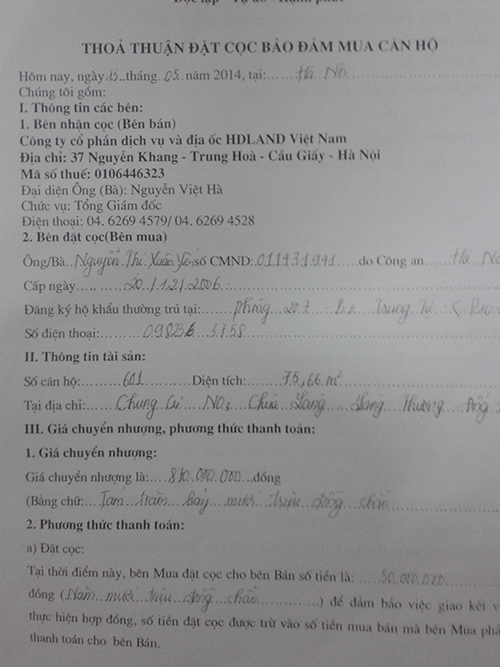 Độc lập - Tự do - Hạnh phúc
THOẢ THUẬN ĐẶT CỌC BẢO ĐẢM MUA CĂN HỘ
Hôm nay, ngày 15..tháng..05..năm 2014, tại:......Hà Nội
Chúng tôi gồm:
I. Thông tin các bên:
1. Bên nhận cọc (Bên bán)
Công ty cổ phần dịch vụ và địa ốc HDLAND Việt Nam
Địa chỉ: 37 Nguyễn Khang - Trung Hoà - Cầu Giấy - Hà Nội
Mã số thuế: 0106446323
Đại diện Ông (Bà): Nguyễn Việt Hà
Chức vụ: Tổng Giám đốc
Điện thoại: 04. 6269 4579/ 04. 6269 4528
2. Bên đặt cọc(Bên mua)
Ông/Bà...Nguyễn Thị Xuân Yến số CMND: 011431941 do Công an Hà Nội
Cấp ngày......20/12/2006
Đăng ký hộ khẩu thường trú tại: phòng 207 - Trung Tự
Số điện thoại:
II. Thông tin tài sản:
Số căn hộ:........601........Diện tích:........75,66 m²
Tại địa chỉ:......Chung cư Chùa Láng Láng Thượng Đống
III. Giá chuyển nhượng, phương thức thanh toán:
1. Giá chuyển nhượng:
Giá chuyển nhượng là:...870.000.000...đồng
(Bằng chữ:...Tám trăm bảy mươi triệu đồng chẵn
2. Phương thức thanh toán:
a) Đặt cọc:
Tại thời điểm này, bên Mua đặt cọc cho bên Bán số tiền là:...50.000.000
đồng (Năm mươi triệu đồng chẵn...) để đảm bảo việc giao kết v
thực hiện hợp đồng, số tiền đặt cọc được trừ vào số tiền mua bán mà bên Mua phả
thanh toán cho bên Bán.